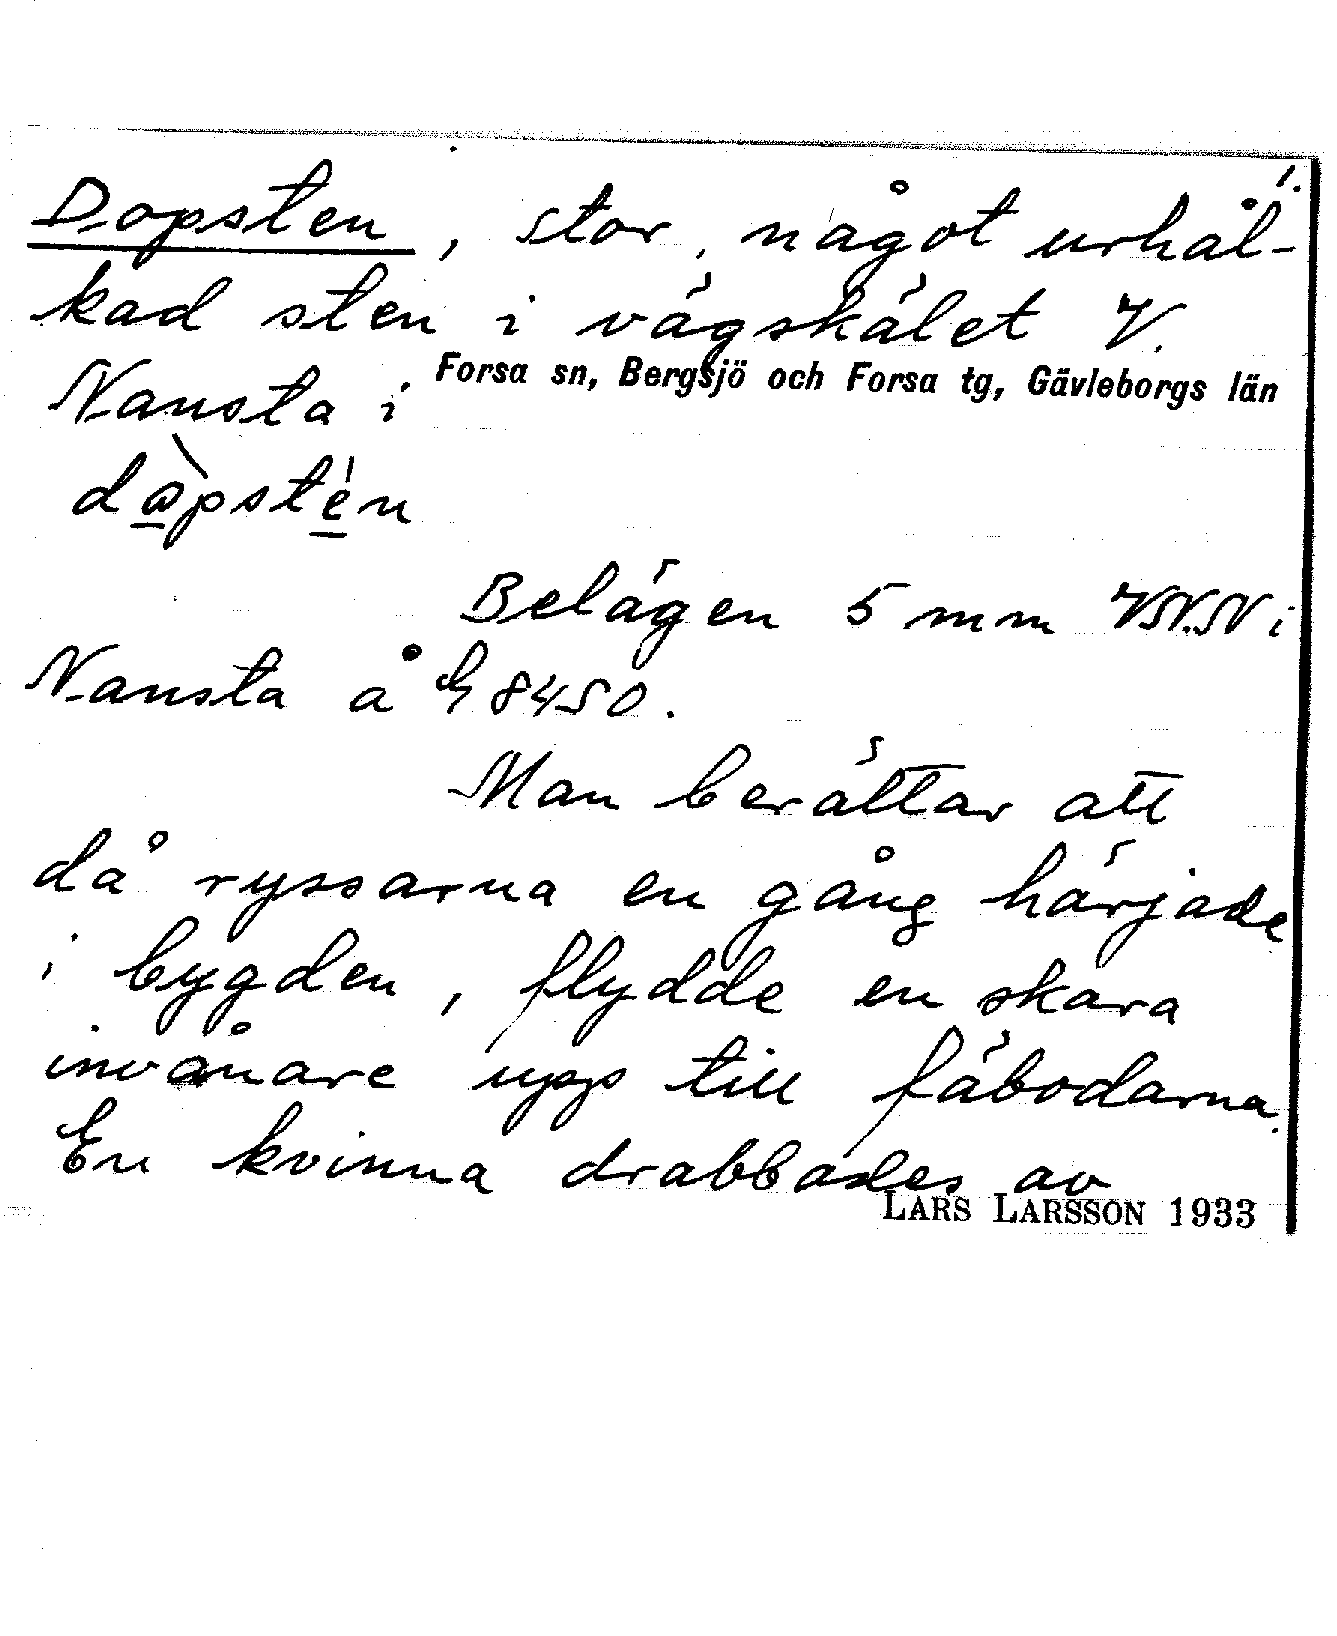 1.
Dopsten, stor, något urhål-
kad sten i vägskälet V.
Nansta i
Forsa sn, Bergsjö och Forsa tg, Gävleborgs län
dὰpstén
Belägen 5 mm VNN i
Nansta å G 8450.
Man berättar att
då ryssarna en gång härjade
i bygden, flydde en skara
invånare upp till fäbodarna.
En kvinna drabbades av
LARS LARSSON 1933